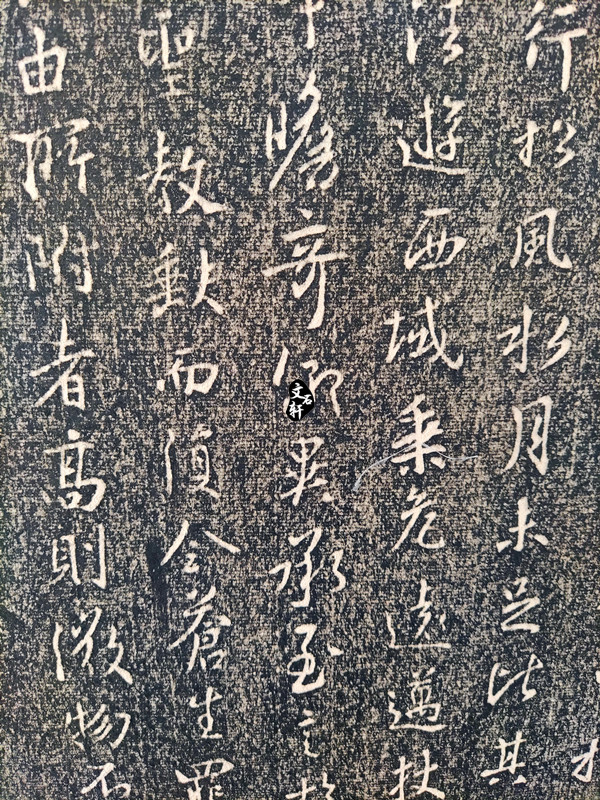 行松風水月未足比其
遊西域乘危遠邁杖
瞻奇仰異承至言於
聖教缺而復全蒼生罪
由所附者高則微物不
文石軒